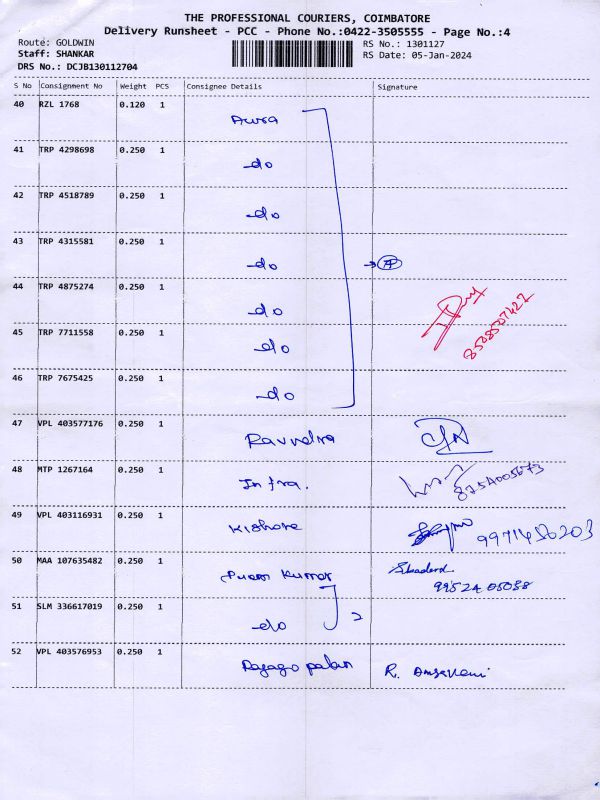 THE PROFESSIONAL COURIERS, COIMBATORE
Delivery Runsheet - PCC - Phone No.:0422-3505555 - Page No.:4
Route: GOLDWIN RS No.: 1301127
Staff: SHANKAR RS Date: 05-Jan-2024
DRS No.: DCJB130112704
S No Consignment No Weight PCS Consignee Details Signature
40 RZL 1768 0.120 1 Aura
41 TRP 4298698 0.250 1 do
42 TRP 4518789 0.250 1 do
43 TRP 4315581 0.250 1 do
44 TRP 4875274 0.250 1 do
45 TRP 7711558 0.250 1 do
46 TRP 7675425 0.250 1 do
47 VPL 403577176 0.250 1
48 MTP 1267164 0.250 1 Infra. 8754005673
49 VPL 403116931 0.250 1 Kishore 9971456203
50 MAA 107635482 0.250 1 Kumar 99524 05088
51 SLM 336617019 0.250 1 do 2
52 VPL 403576953 0.250 1 Rajagopalan R.